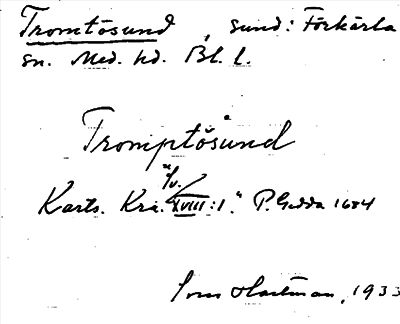 Tromtösund, sund: Förkärla
sn. Med. hd. Bl. l.
Tromptösund
Karts. Kra. "/v. XVIII:1." P. Gedda 1684
Hartman, 1933